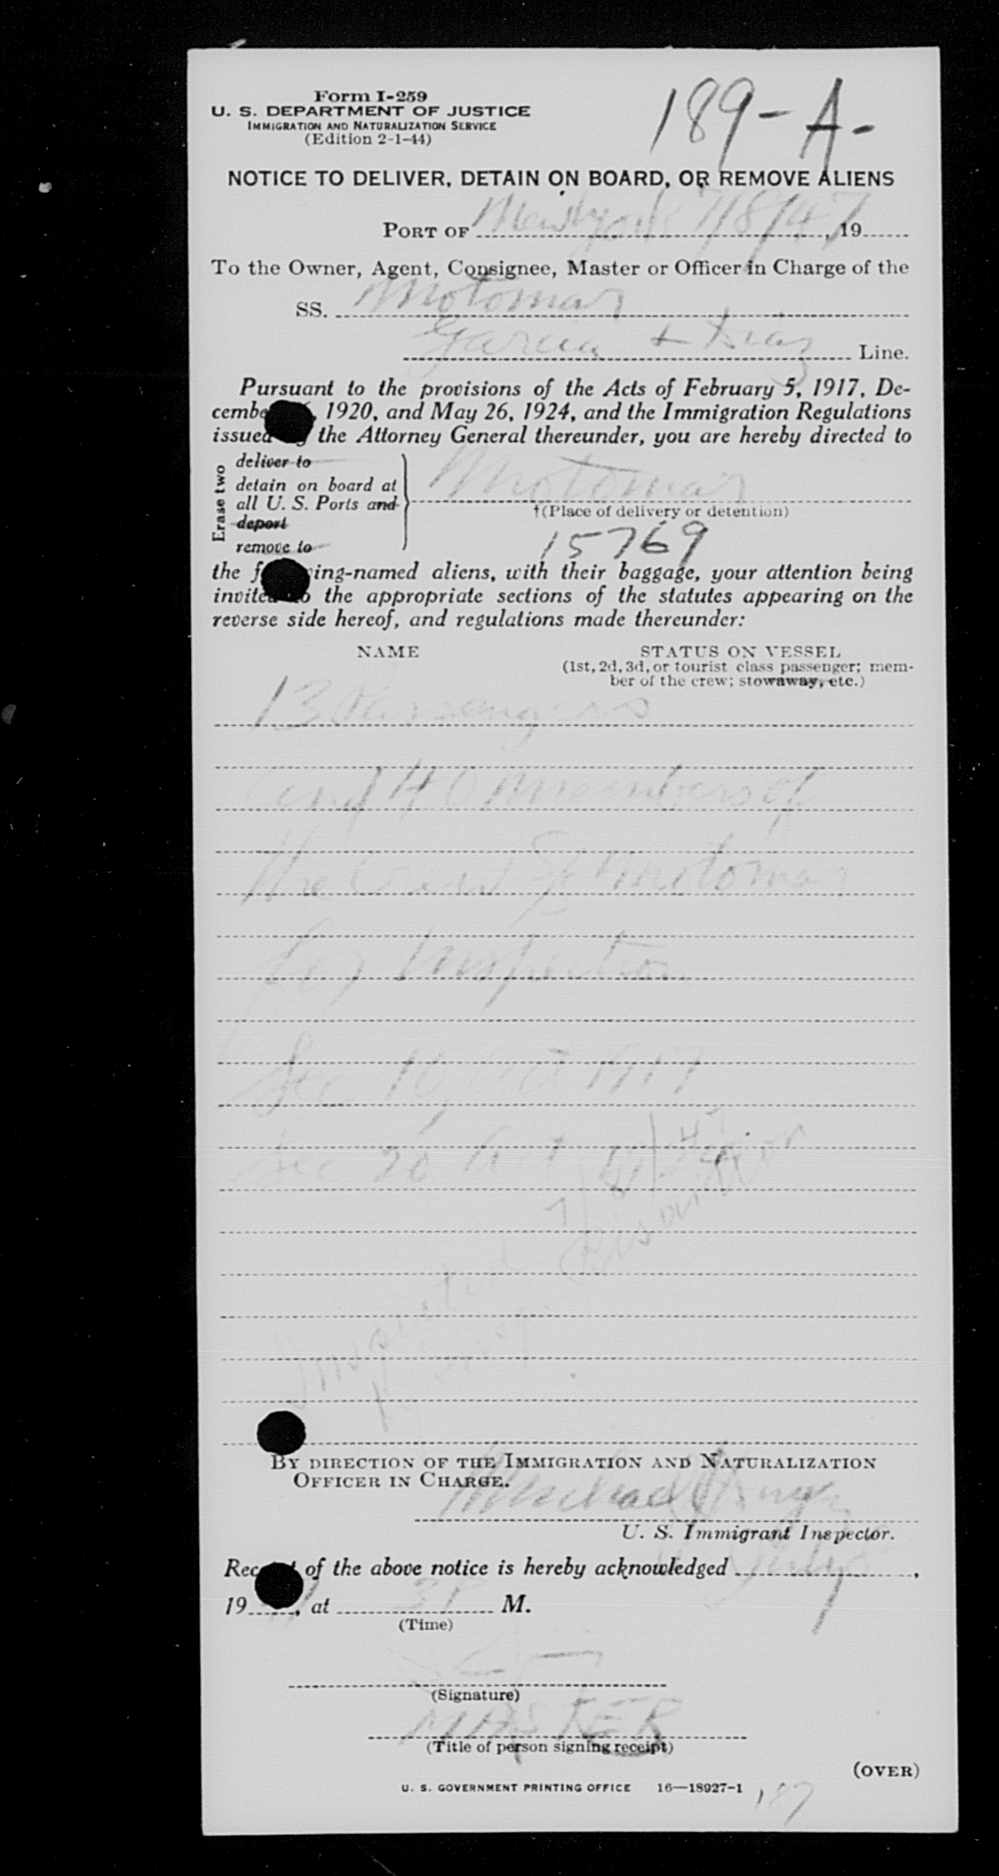 Form I-259
U. S. DEPARTMENT OF JUSTICE
IMMIGRATION AND NATURALIZATION SERVICE
(Edition 2-1-44)
189-A-
NOTICE TO DELIVER, DETAIN ON BOARD, OR REMOVE ALIENS
PORT OF New York 7/8/47, 19
To the Owner, Agent, Consignee, Master or Officer in Charge of the
SS. Motomar
Garcia + Diaz Line.
Pursuant to the provisions of the Acts of February 5, 1917, De-
cembe 1920, and May 26, 1924, and the Immigration Regulations
issued the Attorney General thereunder, you are hereby directed to
Erase two
deliver to
detain on board at
all U. S. Ports and
deport
remove to
Motomar
†(Place of delivery or detention)
15769
the f ing-named aliens, with their baggage, your attention being
invited to the appropriate sections of the statutes appearing on the
reverse side hereof, and regulations made thereunder:
NAME
STATUS ON VESSEL
(1st, 2d, 3d, or tourist class passenger; mem-
ber of the crew; stowaway, etc.)
13 Passengers
and 40 members of
the Crew SS Motomar
for inspection
Sec 16 Act 1917
Sec 20 Act
BY DIRECTION OF THE IMMIGRATION AND NATURALIZATION
OFFICER IN CHARGE.
Michael
U. S. Immigrant Inspector.
Rec of the above notice is hereby acknowledged July 8,
19, at M.
(Time)
(Signature)
MASTER
(Title of person signing receipt)
(OVER)
U. S. GOVERNMENT PRINTING OFFICE 16—18927-1
187